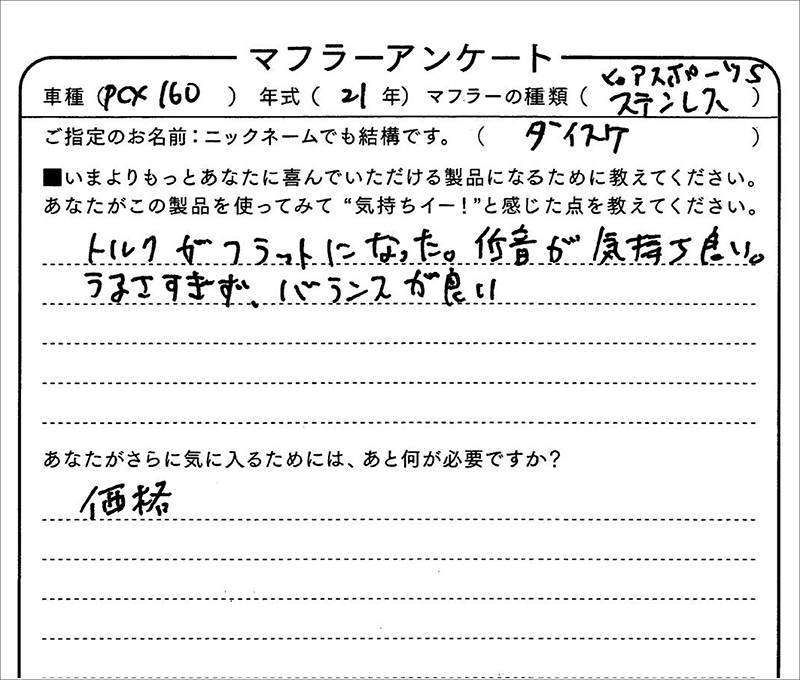 マフラーアンケート
車種(PCX 160) 年式(21年) マフラーの種類(ピュアスポーツS ステンレス)
ご指定のお名前:ニックネームでも結構です。(ダイスケ)
■いまよりもっとあなたに喜んでいただける製品になるために教えてください。
あなたがこの製品を使ってみて“気持ちイー!”と感じた点を教えてください。
トルクがフラットになった。低音が気持ち良い。
うるさすぎず、バランスが良い
あなたがさらに気に入るためには、あと何が必要ですか?
価格